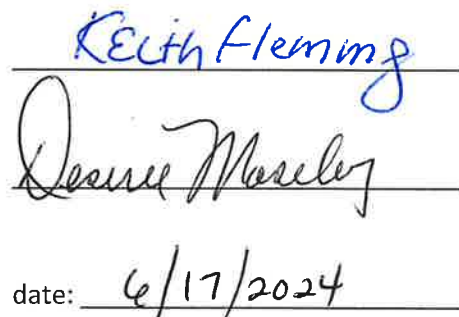 Keith Fleming
Desiree Moseley
date: 6/17/2024